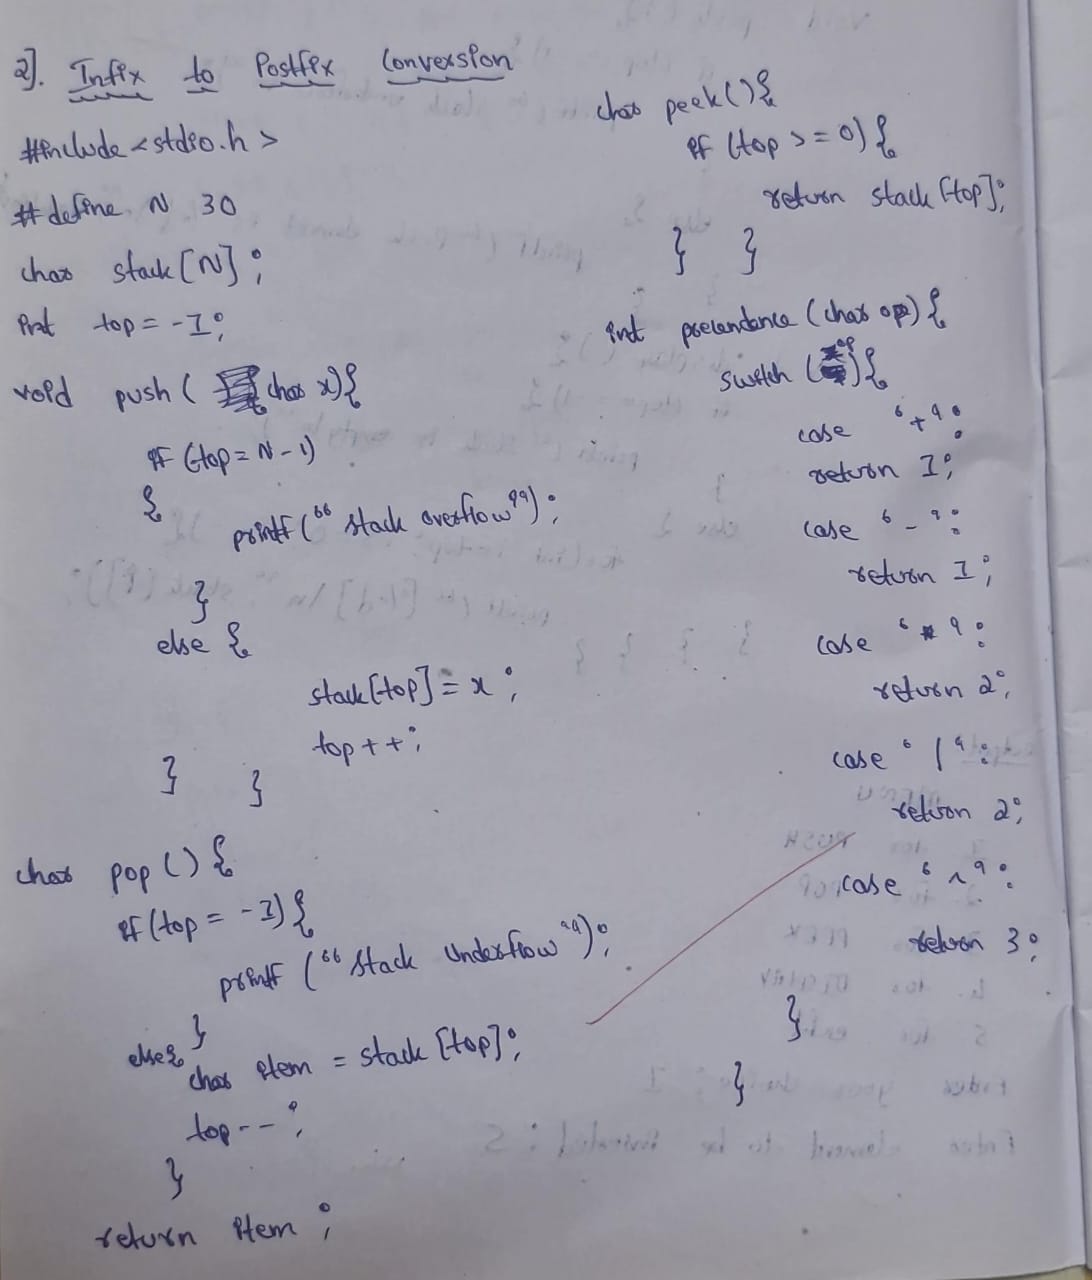 2]. Infix to Postfix Conversion
#include <stdio.h>
#define N 30
char stack[N];
int top = -1;
void push( char x){
if (top = N-1)
{
printf("stack overflow");
}
else {
stack[top] = x;
top++;
} }
char pop() {
if (top = -1) {
printf ("stack Underflow");
}
else{
char item = stack [top];
top--;
}
return item;
char peek(){
if (top >= 0) {
return stack [top];
} }
int precendance (char op) {
switch (op){
case '+':
return 1;
case '-':
return 1;
case '*':
return 2;
case '/':
return 2;
case '^':
return 3;
}
}